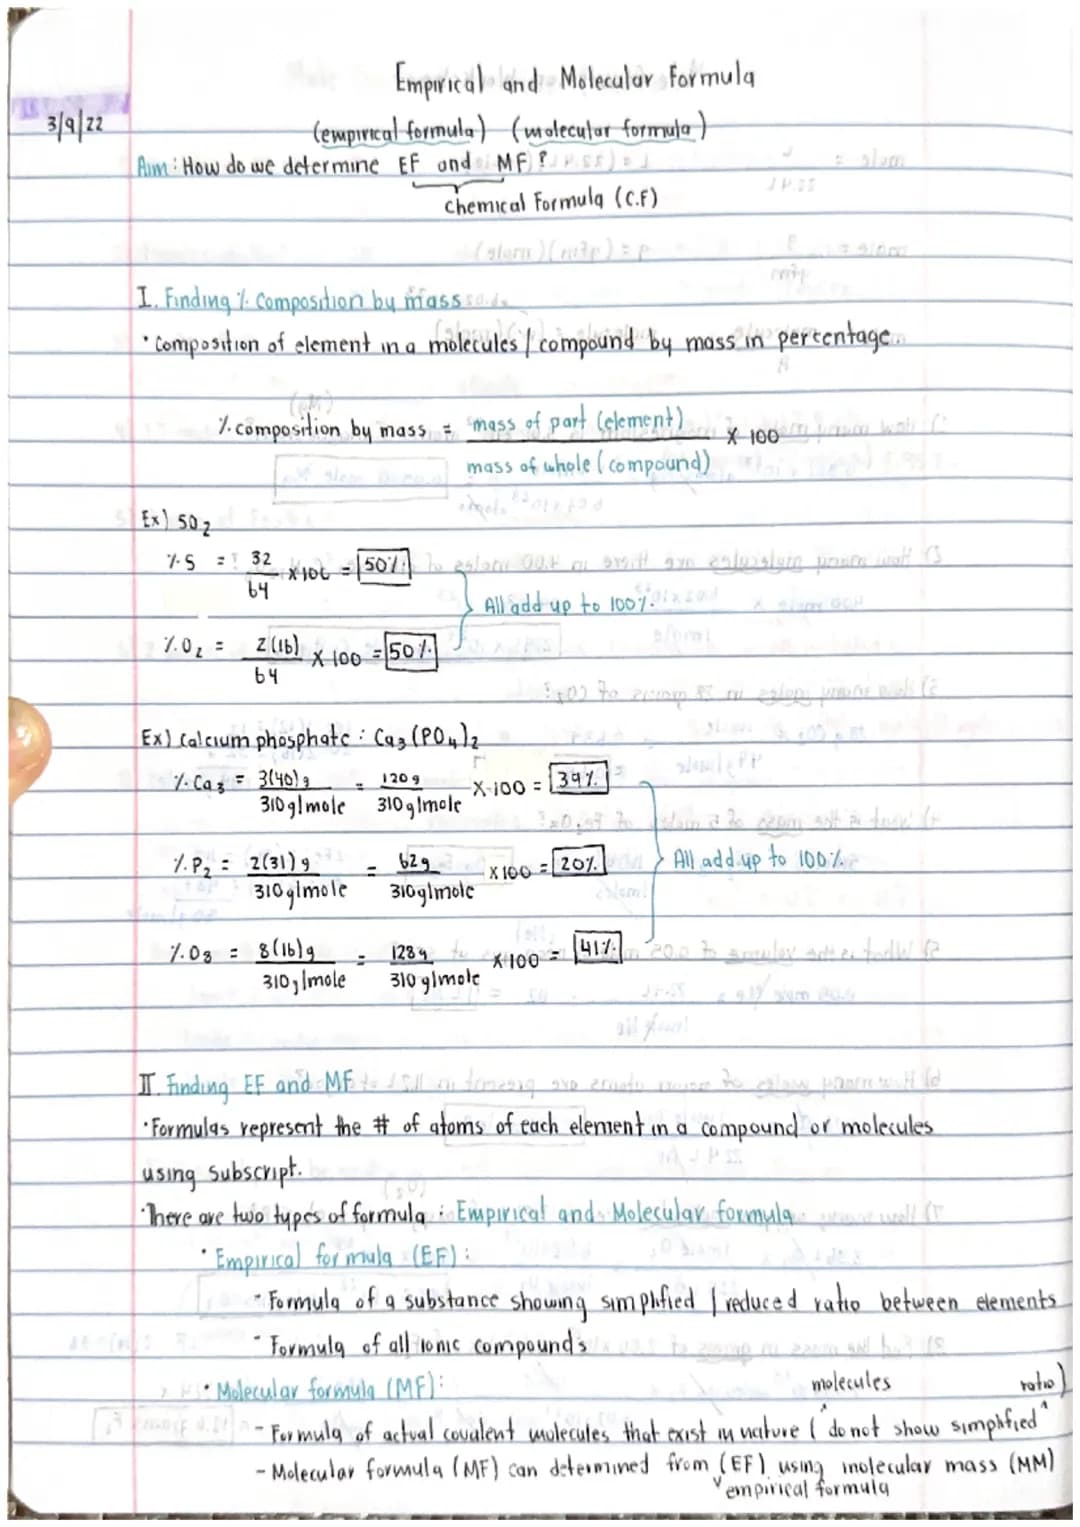 Empirical and Molecular Formula
3/9/22
(empirical formula) (molecular formula)
Aim: How do we determine EF and MF?
Chemical Formula (C.F)
I. Finding % Composition by mass
· Composition of element in a molecules / compound by mass in percentage.
% composition by mass = mass of part (element) / mass of whole (compound) X 100
Ex) SO2
% S = 32/64 X 100 = 50%
All add up to 100%.
% O2 = 2(16)/64 X 100 = 50%
Ex) Calcium phosphate : Ca3(PO4)2
% Ca3 = 3(40)g / 310 g/mole = 120g / 310 g/mole X 100 = 39%
% P2 = 2(31)g / 310 g/mole = 62g / 310 g/mole X 100 = 20%
All add up to 100%.
% O8 = 8(16)g / 310 g/mole = 128g / 310 g/mole X 100 = 41%
II. Finding EF and MF
· Formulas represent the # of atoms of each element in a compound or molecules
using subscript.
· There are two types of formula : Empirical and Molecular formula
· Empirical formula (EF) :
- Formula of a substance showing simplified / reduced ratio between elements
- Formula of all ionic compounds
· Molecular formula (MF):
molecules ratio)
- Formula of actual covalent molecules that exist in nature ( ^ do not show simplified ^
- Molecular formula (MF) can determined from (EF) using molecular mass (MM)
empirical formula